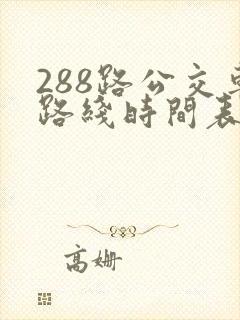 288路公交
路綫時間表
高姗